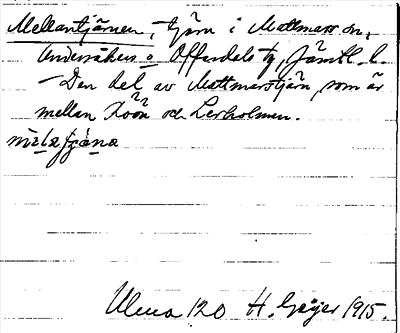 Mellantjärnen, tjärn i Mattmars sn,
Undersåkers o Offerdals tg, Jämtl. l.
— Den del av Mattmarstjärn, som är
mellan Köön och Lerholmen.
Ulma 120 H. Geijer 1915.